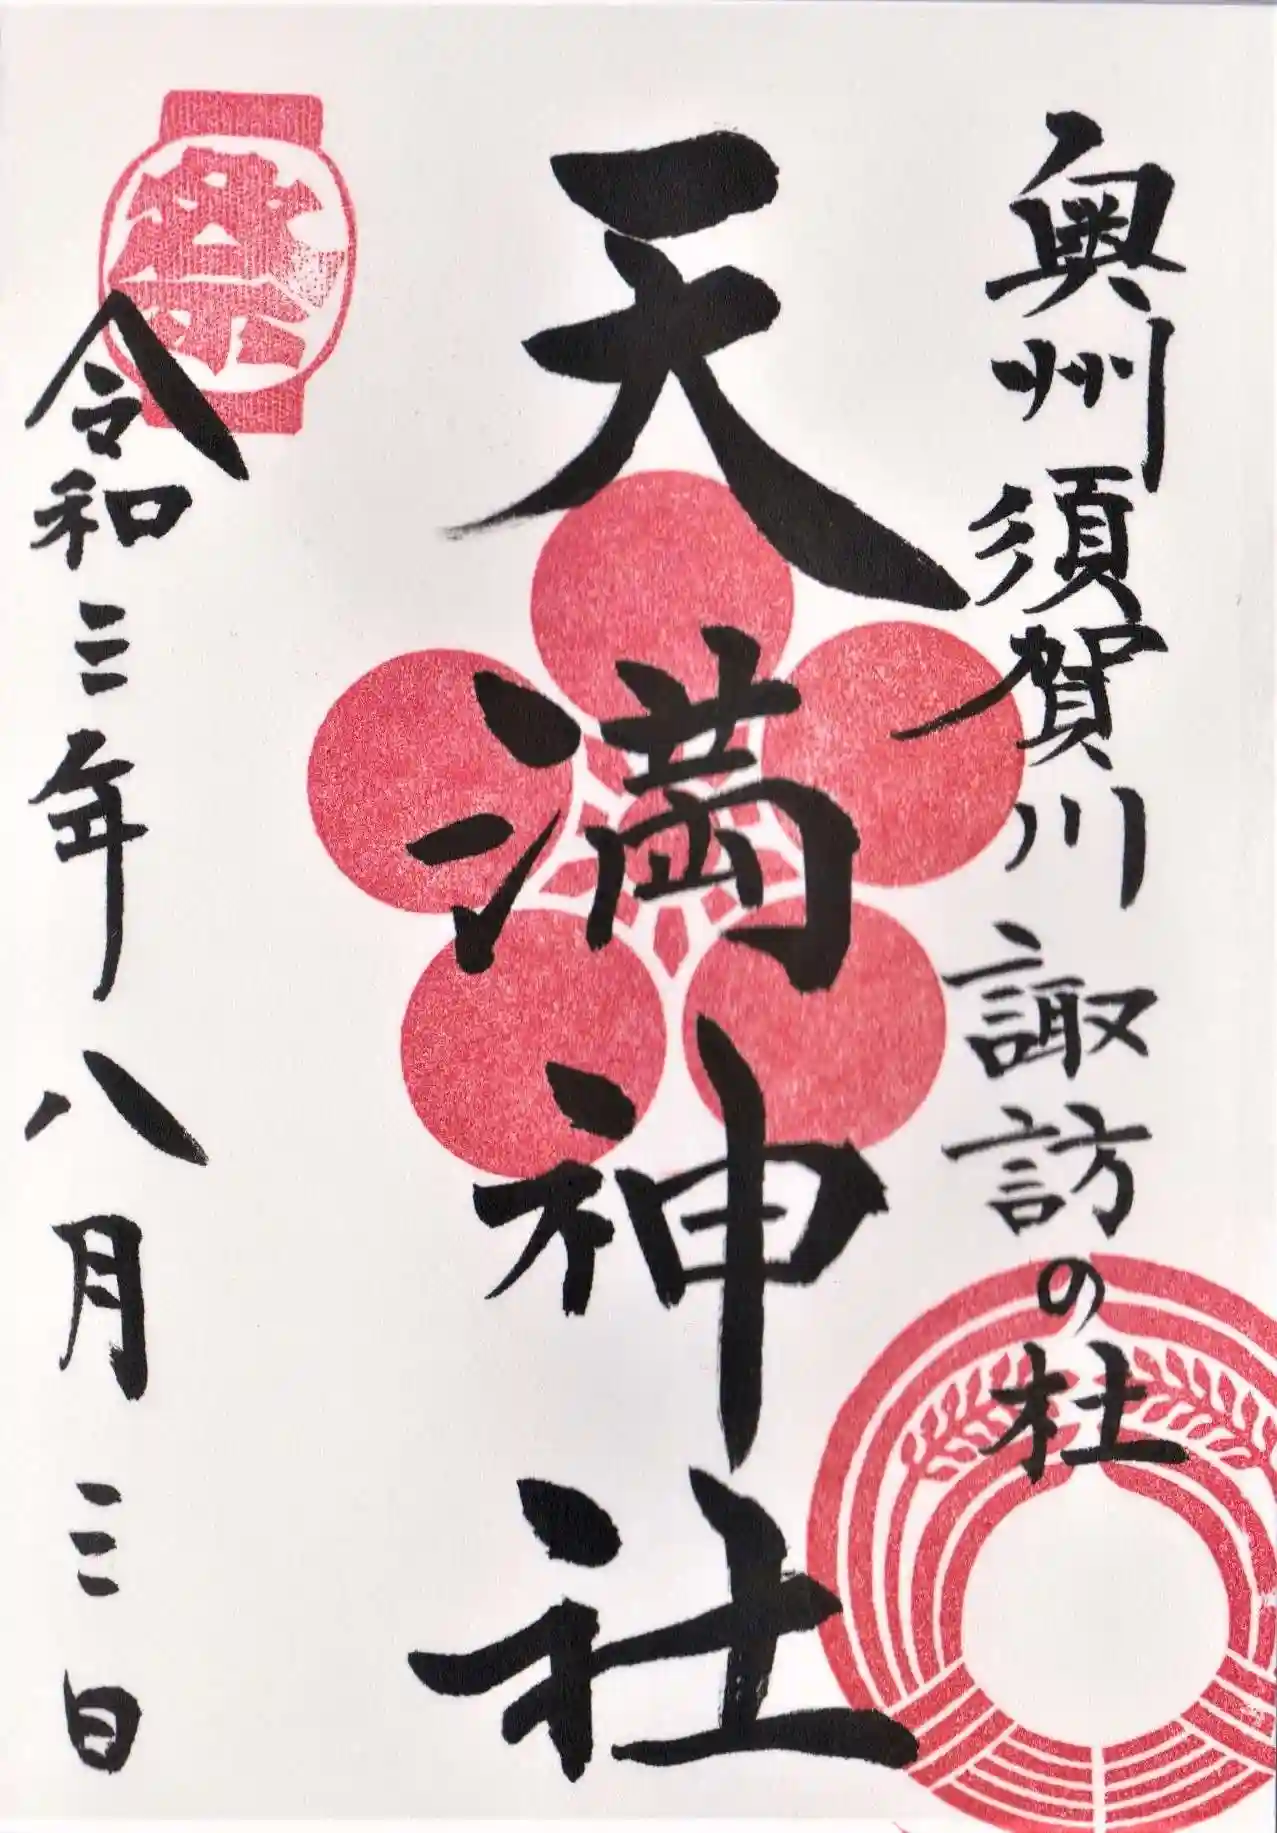 奥州須賀川諏訪の杜
天満神社
令和三年八月三日
祭